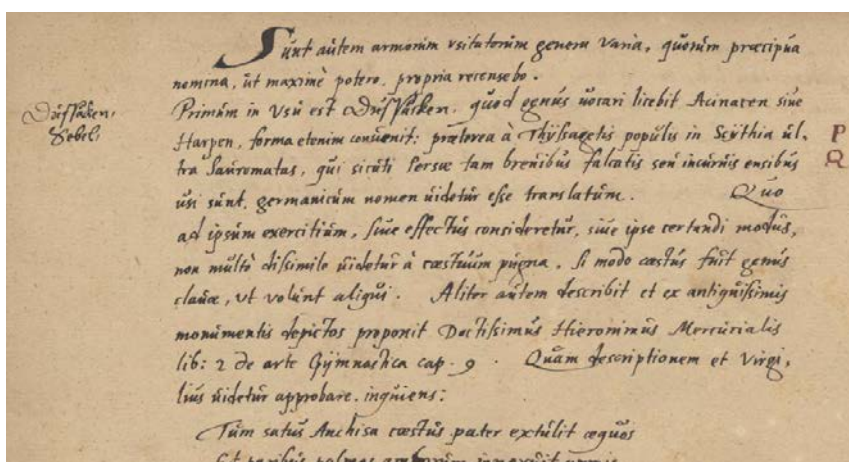 Sunt autem armorum usitatorum genera varia, quorum præcipua
nomina, ut maximè potero, propria recensebo.
Dussacken,
Sebel.
Primum in Usu est Dussacken. quod genus uocari licebit Acinacen siue
Harpen, forma etenim conuenit: præterea à Thyssagetis populis in Scythia ul,
tra Sauromatas, qui sicuti Persæ tam breuibus falcatis seu incuruis ensibus
usi sunt, germanicum nomen uidetur esse translatum. Quo
ad ipsum exercitium, siue effectus consideretur, siue ipse certandi modus,
non multò dissimile uidetur à cæstuum pugna, si modo cæstus fuit genus
clauæ, ut volunt aliqui. Aliter autem describit et ex antiquissimis
monumentis depictos proponit Doctissimus Hieronimus Mercurialis
lib: 2 de arte Gymnastica cap. 9. Quam descriptionem et Virgi,
lius uidetur approbare, inquiens:
Tum satus Anchisa cæstus pater extulit æquos
Et paribus palmas amborum innexuit armis
P
R